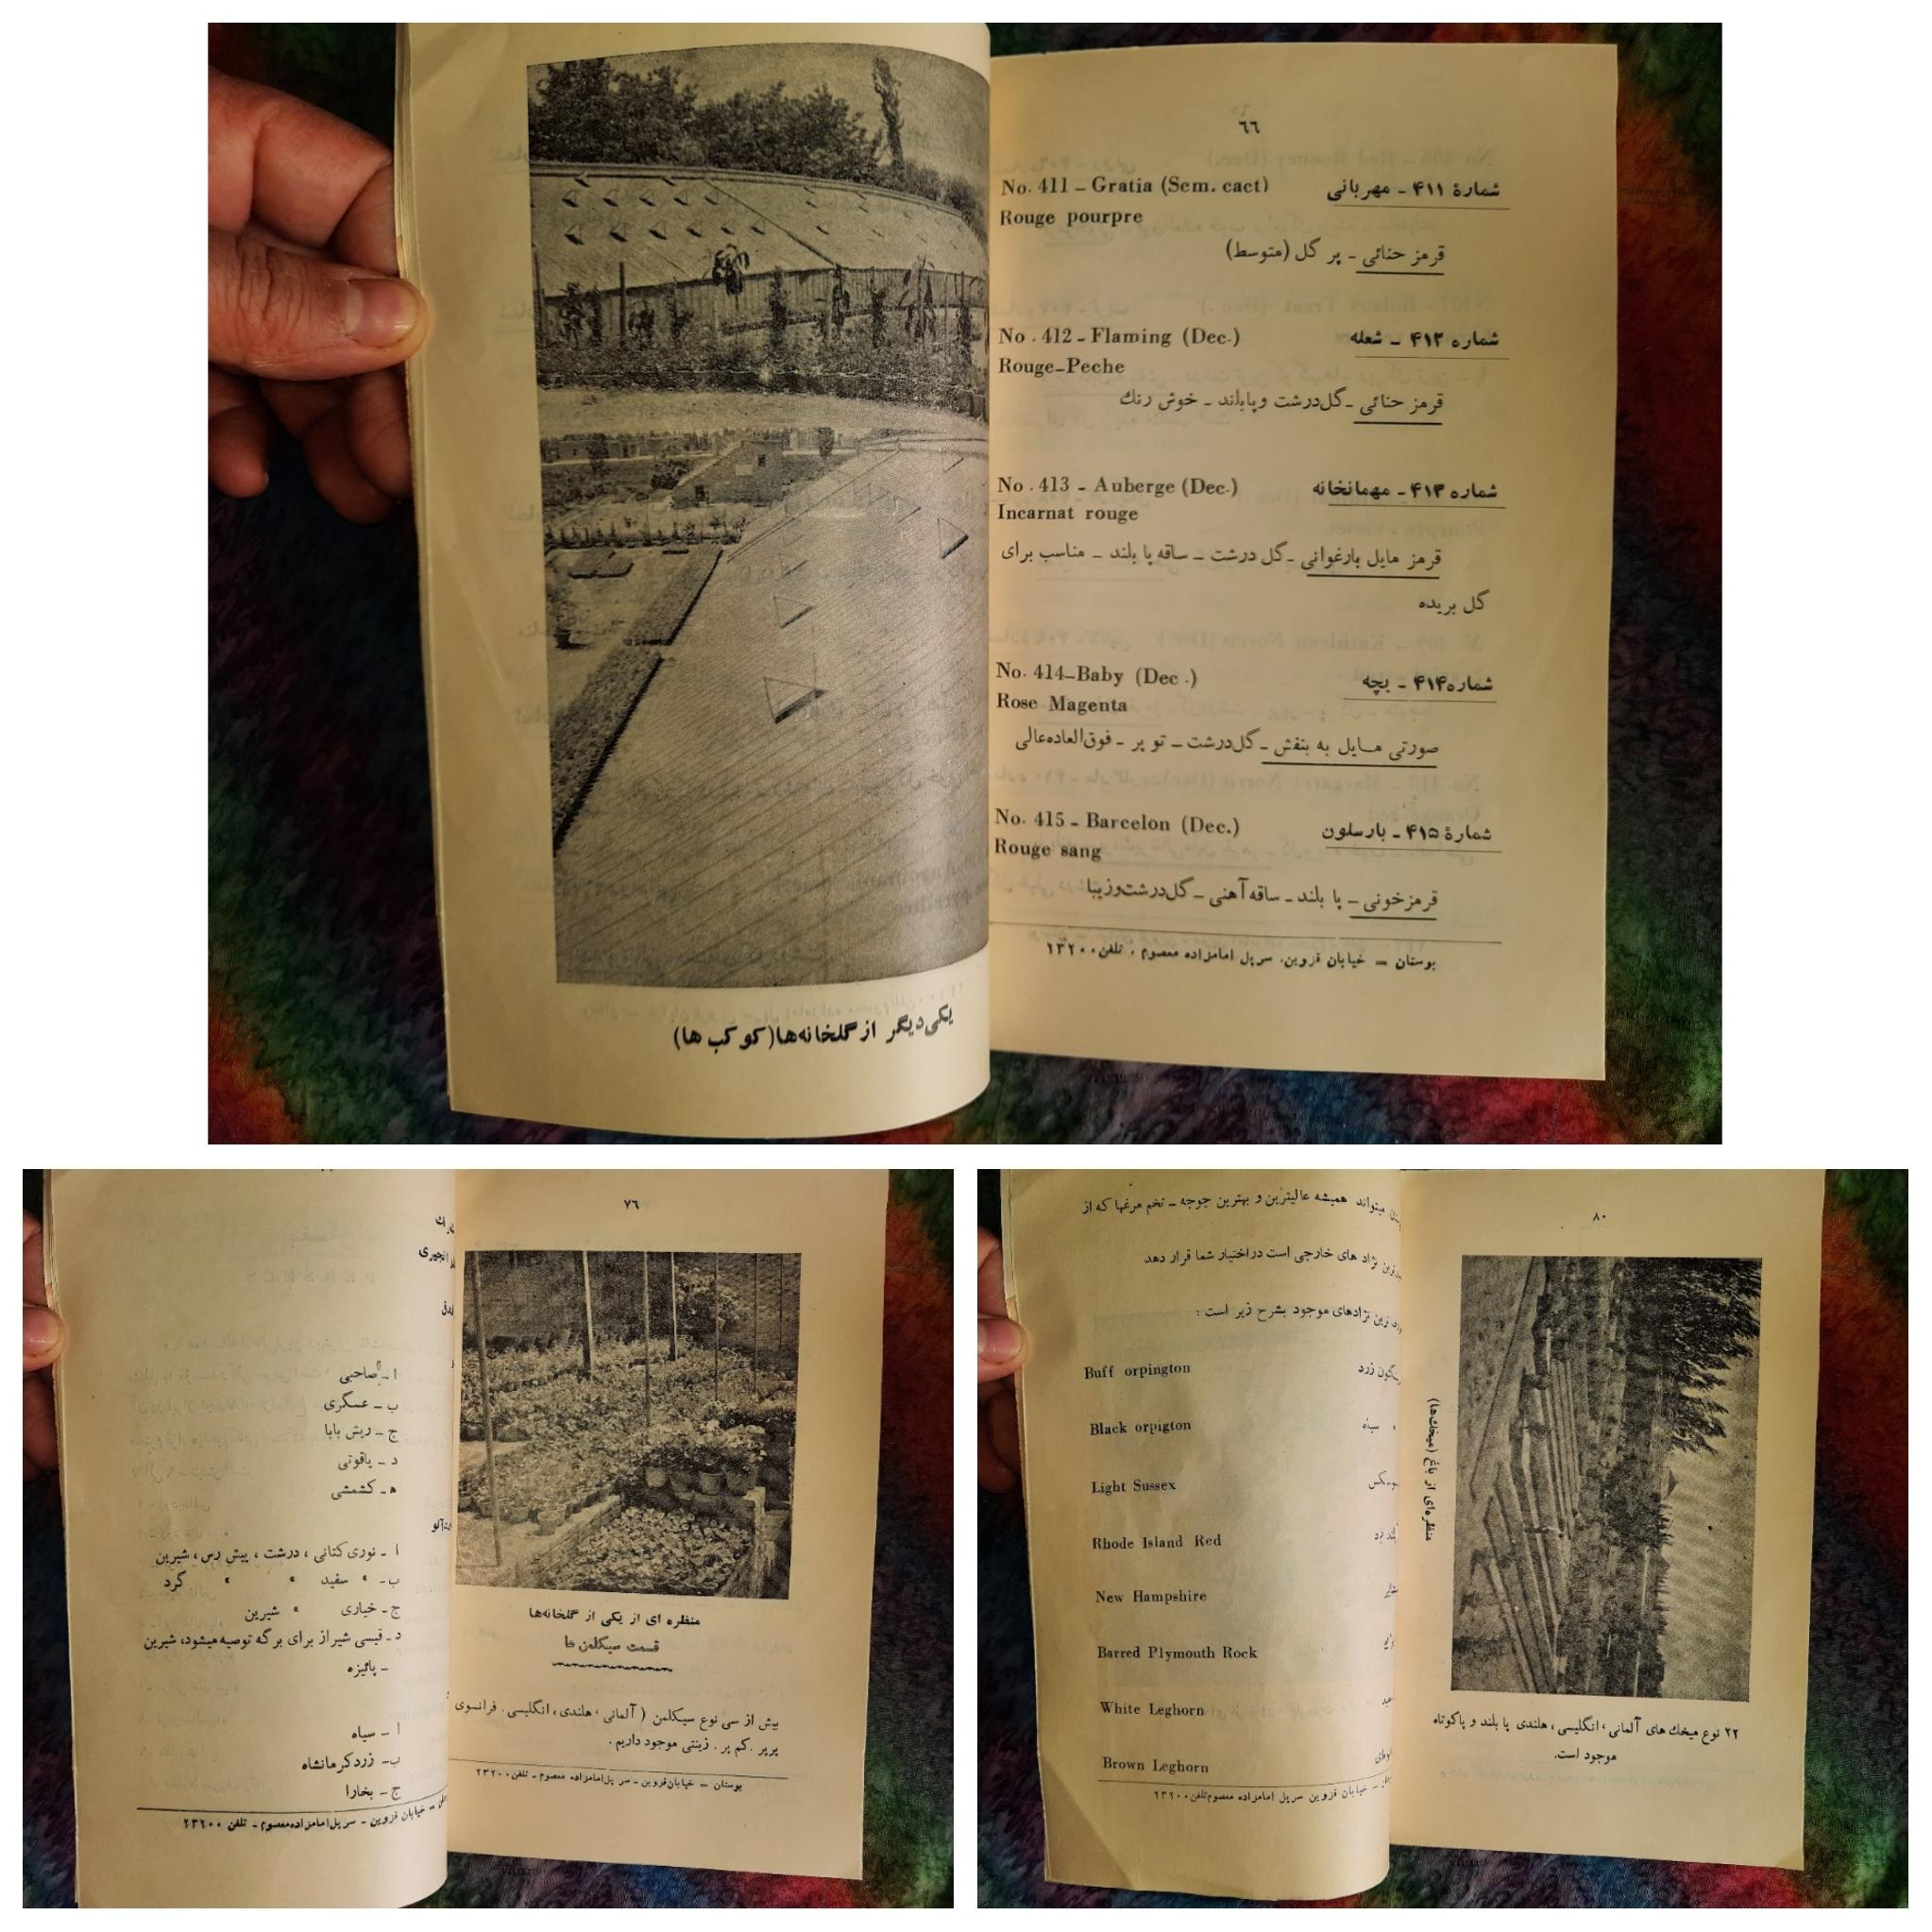 یکی‌دیگر از گلخانه‌ها (کوکب ها)
٦٦
No. 411 – Gratia (Sem. cact) شمارهٔ ۴۱۱ – مهربانی
Rouge pourpre
قرمز حنائی – پر گل (متوسط)
No . 412 – Flaming (Dec.) شماره ۴۱۲ – شعله
Rouge–Peche
قرمز حنائی – گل‌درشت وپابلند – خوش رنك
No . 413 – Auberge (Dec.) شماره ۴۱۳ – مهمانخانه
Incarnat rouge
قرمز مایل بارغوانی – گل درشت – ساقه پا بلند – مناسب برای
گل بریده
No. 414–Baby (Dec .) شماره۴۱۴ – بچه
Rose Magenta
صورتی مـایل به بنفش – گل‌درشت – تو پر – فوق‌العاده‌عالی
No. 415 – Barcelon (Dec.) شمارهٔ ۴۱۵ – بارسلون
Rouge sang
قرمزخونی – پا بلند – ساقه‌آهنی – گل‌درشت‌وزیبا
بوستان – خیابان قزوین. سرپل امامزاده معصوم . تلفن ۲۳۲۰۰
ا – صاحبی
ب – عسگری
ج – ریش بابا
د – یاقوتی
ه – کشمشی
ا – نوری‌کتانی ، درشت ، پیش رس، شیرین
ب – » سفید » » گرد
ج – خیاری » شیرین
د – قیسی شیراز برای برگه توصیه میشود، شیرین
– پائیزه
ا – سیاه
ب – زردکرمانشاه
ج – بخارا
– خیابان قزوین – سرپل‌امامزاده‌معصوم – تلفن ۲۳۲۰۰
۷٦
منظره ای از یکی از گلخانه‌ها
قسمت سیکلمن ها
بیش از سی نوع سیکلمن ( آلمانی ، هلندی، انگلیسی. فرانسوی
پرپر . کم پر . زینتی موجود داریم .
بوستان – خیابان‌قزوین – سر پل‌امامزاده معصوم – تلفن ۲۳۲۰۰
میتواند همیشه عالیترین و بهترین جوجه – تخم مرغها که از
نژاد های خارجی است دراختیار شما قرار دهد
ترین نژادهای موجود بشرح زیر است :
Buff orpington زرد
Black orpigton » سیاه
Light Sussex
Rhode Island Red
New Hampshire
Barred Plymouth Rock
White Leghorn
Brown Leghorn
– خیابان قزوین سرپل امامزاده معصوم‌تلفن ۲۳۲۰۰
۸۰
منظره‌ای از باغ (میخك‌ها)
۲۲ نوع میخك های آلمانی ، انگلیسی، هلندی پا بلند و پاکوتاه
موجود است.